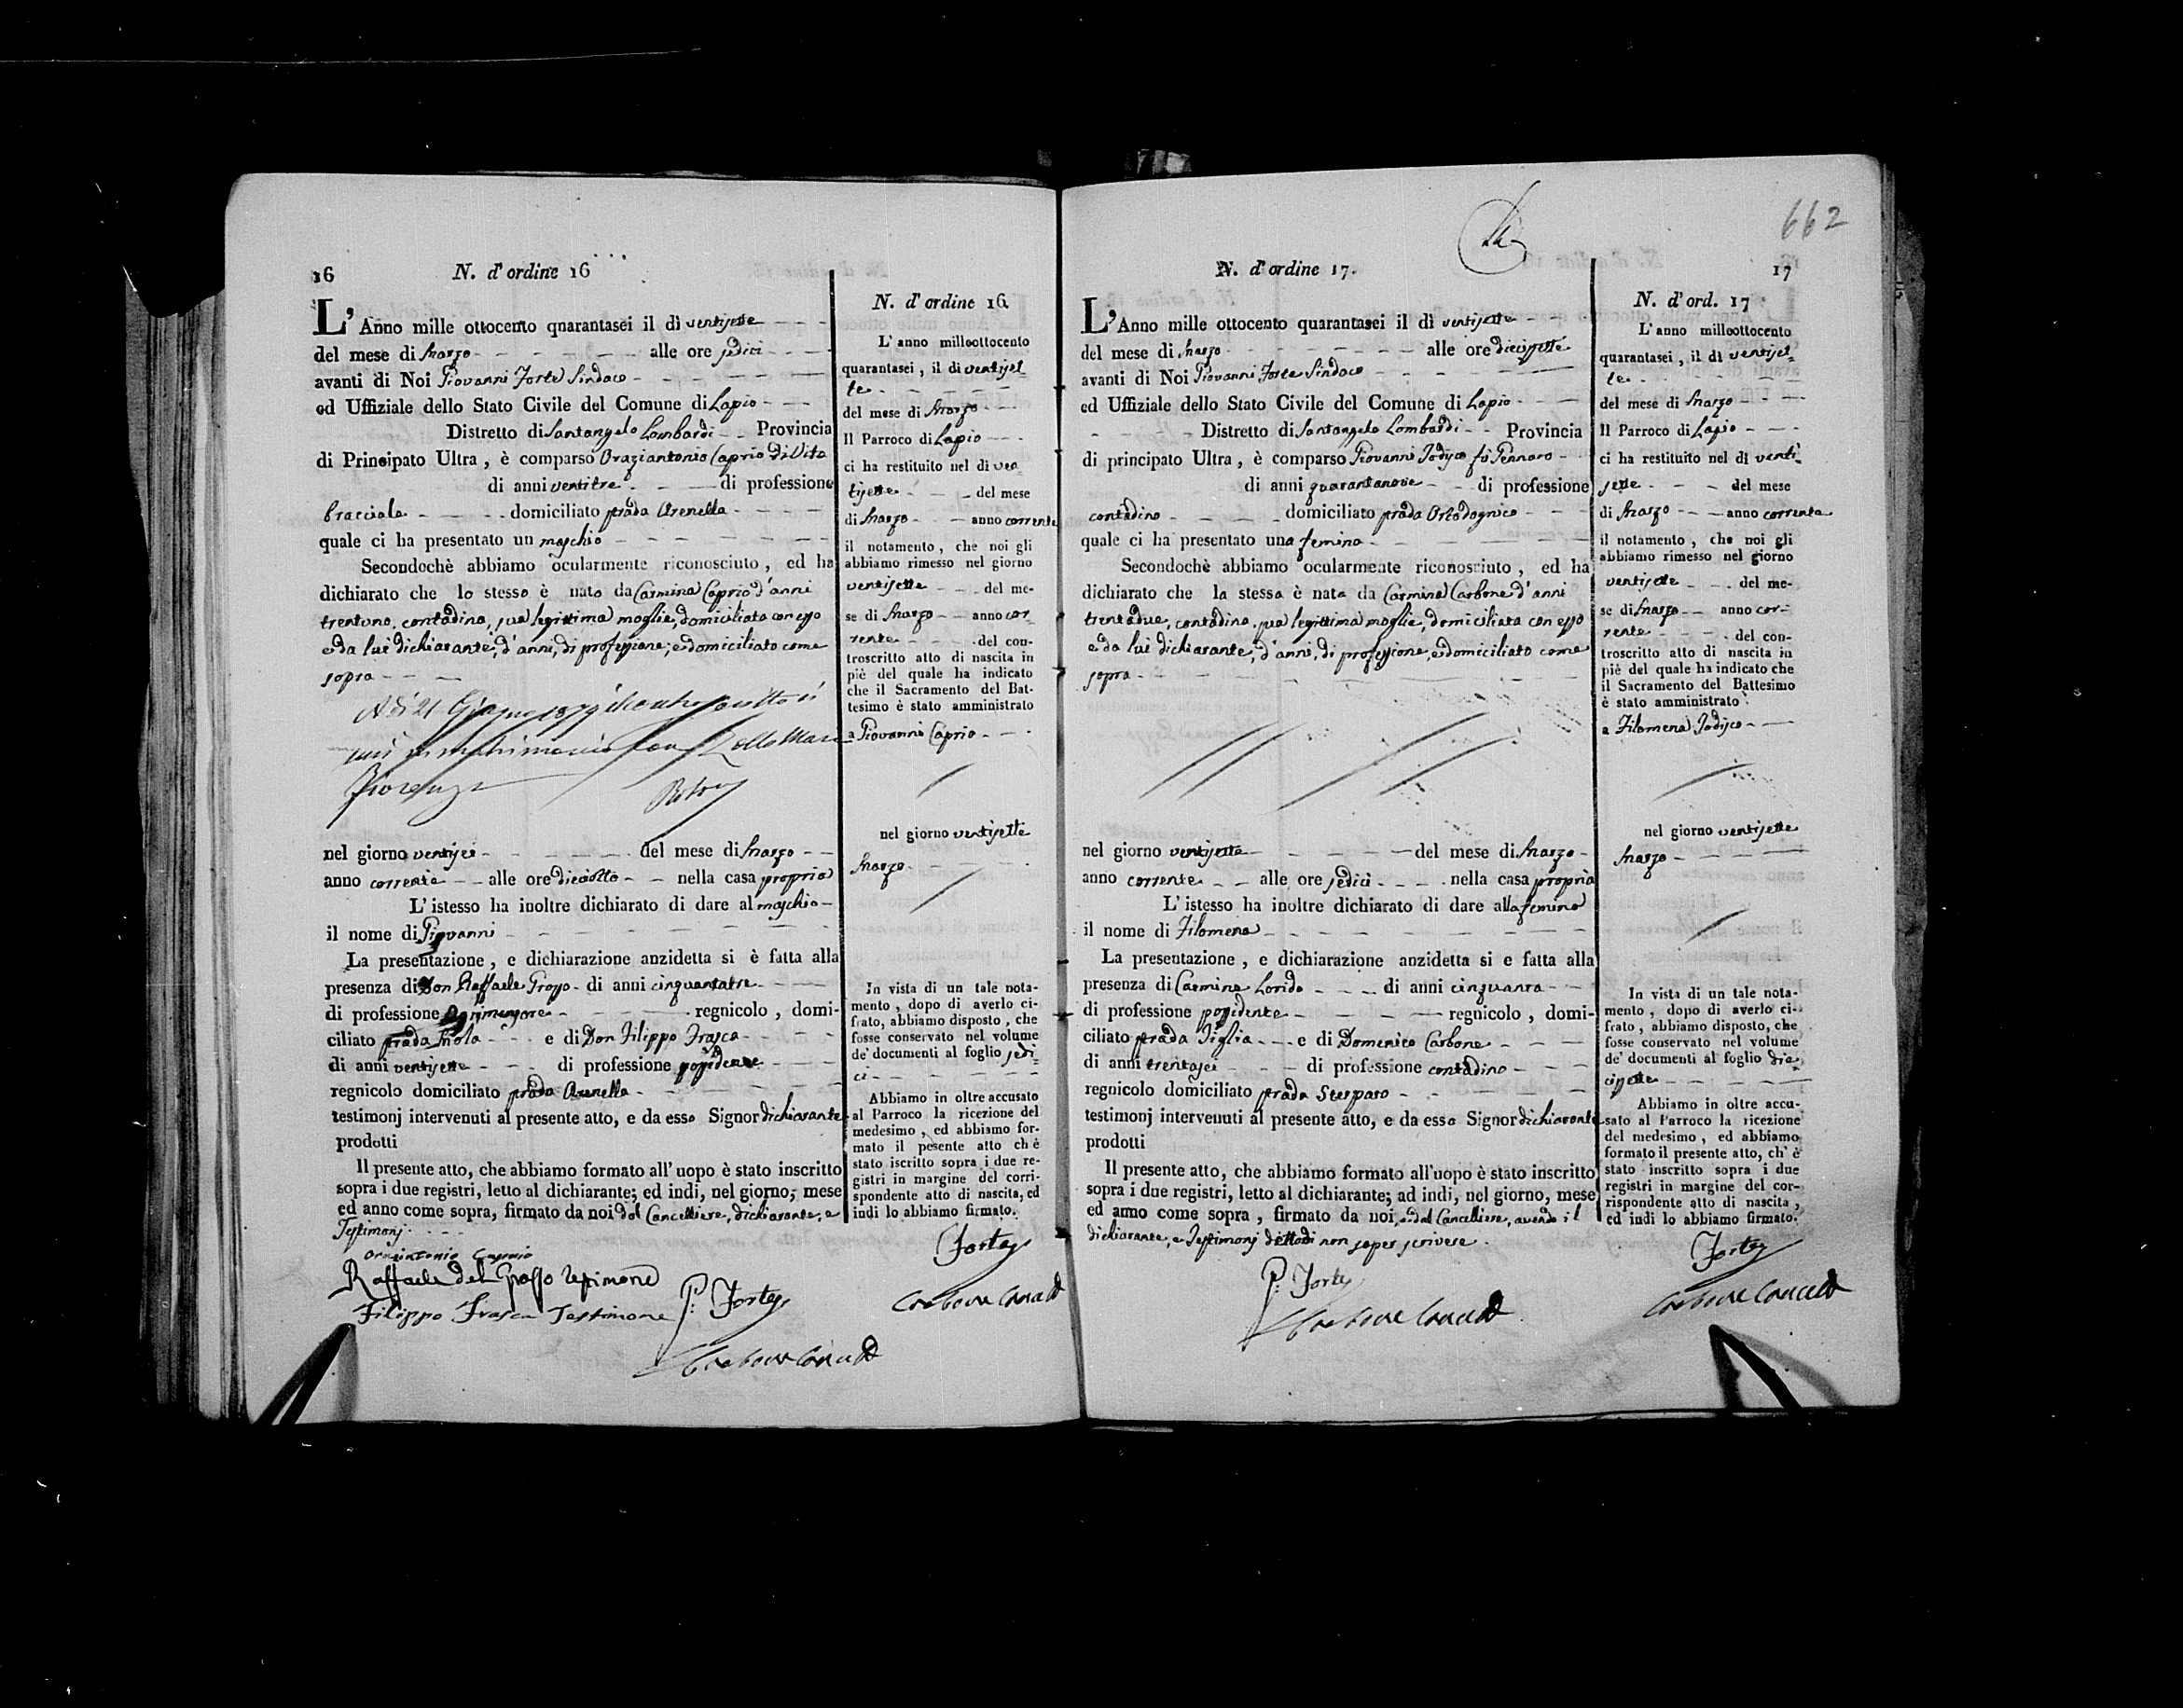 662
16
N. d'ordine 16
L'Anno mille ottocento qnarantasei il dì ventisette
del mese di Marzo alle ore sedici
avanti di Noi Giovanni Forte Sindaco
ed Uffiziale dello Stato Civile del Comune di Lapio
Distretto di Santangelo Lombardi Provincia
di Principato Ultra, è comparso Oraziantonio Caprio di Vito
di anni ventitre di professione
bracciale domiciliato strada Arenella
quale ci ha presentato un maschio
Secondochè abbiamo ocularmente riconosciuto, ed ha
dichiarato che lo stesso è nato da Carmina Caprio d'anni
trentuno, contadina, sua legittima moglie, domiciliata con esso
e da lui dichiarante, d'anni, di professione, e domiciliato come
sopra
nel giorno ventisei del mese di Marzo
anno corrente alle ore dieciotto nella casa propria
L'istesso ha inoltre dichiarato di dare al maschio
il nome di Giovanni
La presentazione, e dichiarazione anzidetta si è fatta alla
presenza di Don Raffaele Grosso di anni cinquantatre
di professione regnicolo, domi-
ciliato strada Mola e di Don Filippo Frasca
di anni ventisette di professione possidente
regnicolo domiciliato strada Arenella
testimonj intervenuti al presente atto, e da esso Signor dichiarante
prodotti
Il presente atto, che abbiamo formato all'uopo è stato inscritto
sopra i due registri, letto al dichiarante; ed indi, nel giorno, mese
ed anno come sopra, firmato da noi dal Cancelliere, dichiarante, e
Testimonj
Orazintonio Caprio
Raffaele del Grosso Testimone
Filippo Frasca Testimone
G: Forte
Carbone
N. d'ordine 16.
L'anno milleottocento
quarantasei, il dì ventiset-
te
del mese di Marzo
Il Parroco di Lapio
ci ha restituito nel dì ven-
tisette del mese
di Marzo anno corrente
il notamento, che noi gli
abbiamo rimesso nel giorno
ventisette del me-
se di Marzo anno cor-
rente del con-
troscritto atto di nascita in
piè del quale ha indicato
che il Sacramento del Bat-
tesimo è stato amministrato
a Giovanni Caprio
nel giorno ventisette
Marzo
In vista di un tale nota-
mento, dopo di averlo ci-
frato, abbiamo disposto, che
fosse conservato nel volume
de' documenti al foglio sedi-
ci
Abbiamo in oltre accusato
al Parroco la ricezione del
medesimo, ed abbiamo for-
mato il pesente atto ch è
stato iscritto sopra i due re-
gistri in margine del corri-
spondente atto di nascita, ed
indi lo abbiamo firmato.
Forte
Carbone
N. d'ordine 17.
17
L'Anno mille ottocento quarantasei il dì ventisette
del mese di Marzo alle ore diecissette
avanti di Noi Giovanni Forte Sindaco
ed Uffiziale dello Stato Civile del Comune di Lapio
Distretto di Santangelo Lombardi Provincia
di principato Ultra, è comparso Giovanni Jodisco fù Gennaro
di anni quarantanove di professione
contadino domiciliato strada Ortodognico
quale ci ha presentato una femina
Secondochè abbiamo ocularmente riconosciuto, ed ha
dichiarato che la stessa è nata da Carmina Carbone d'anni
trentadue, contadina, sua legittima moglie, domiciliata con esso
e da lui dichiarante, d'anni, di professione, e domiciliato come
sopra
nel giorno ventisette del mese di Marzo
anno corrente alle ore sedici nella casa propria
L'istesso ha inoltre dichiarato di dare alla femina
il nome di Filomena
La presentazione, e dichiarazione anzidetta si e fatta alla
presenza di Carmine Lorido di anni cinquanta
di professione possidente regnicolo, domi-
ciliato strada Tiglia e di Domenico Carbone
di anni trentasei di professione contadino
regnicolo domiciliato strada Sterparo
testimonj intervenuti al presente atto, e da esso Signor dichiarante
prodotti
Il presente atto, che abbiamo formato all'uopo è stato inscritto
sopra i due registri, letto al dichiarante; ad indi, nel giorno, mese
ed anno come sopra, firmato da noi, e dal Cancelliere, avendo il
dichiarante, e Testimonj dettodi non saper scrivere.
G: Forte
Carbone
N. d'ord. 17
L'anno milleottocento
quarantasei, il dì ventiset-
te
del mese di Marzo
Il Parroco di Lapio
ci ha restituito nel dì venti-
sette del mese
di Marzo anno corrente
il notamento, che noi gli
abbiamo rimesso nel giorno
ventisette del me-
se di Marzo anno cor-
rente del con-
troscritto atto di nascita in
piè del quale ha indicato che
il Sacramento del Battesimo
è stato amministrato
a Filomena Jodisco
nel giorno ventisette
Marzo
In vista di un tale nota-
mento, dopo di averlo ci-
frato, abbiamo disposto, che
fosse conservato nel volume
de' documenti al foglio die-
cissette
Abbiamo in oltre accu-
sato al Parroco la ricezione
del medesimo, ed abbiamo
formato il presente atto, ch'è
stato inscritto sopra i due
registri in margine del cor-
rispondente atto di nascita,
ed indi lo abbiamo firmato.
Forte
Carbone